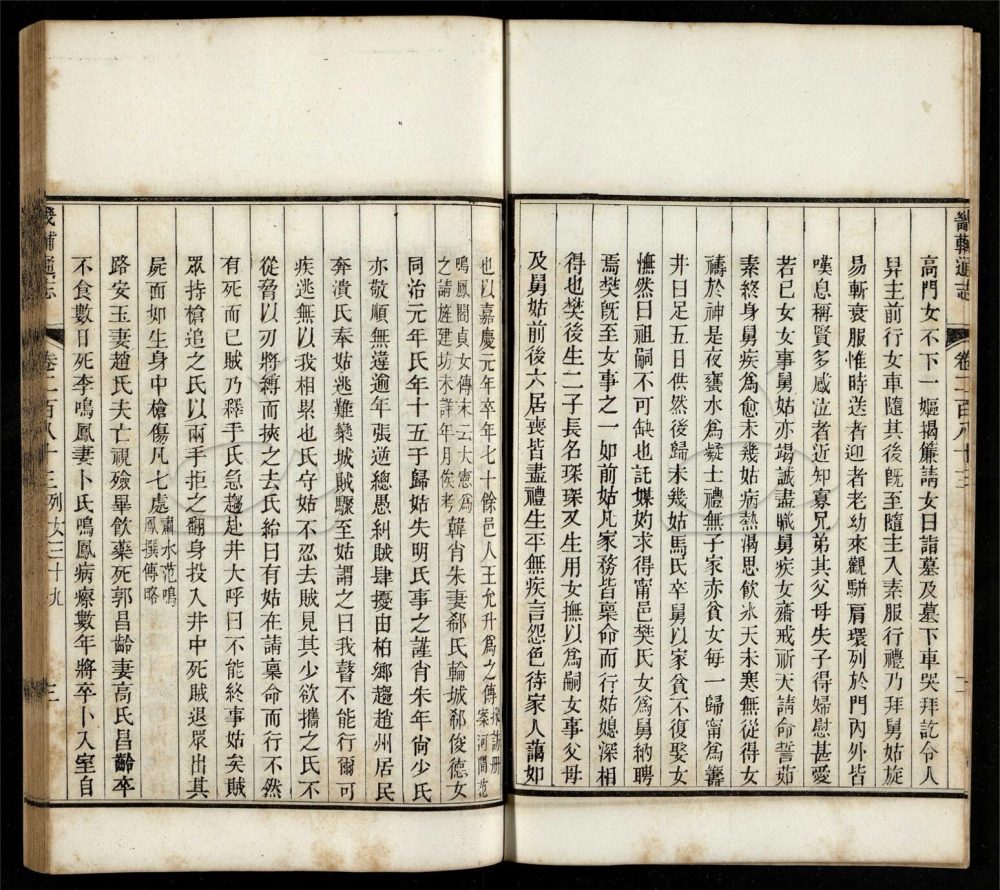 畿輔通志
卷二百八十三
二
高門女不下一嫗揭簾請女曰詣墓及墓下車哭拜訖令人
昇主前行女車隨其後旣至隨主入素服行禮乃拜舅姑旋
易斬衰服惟時送者迎者老幼來觀駢肩環列於門內外皆
嘆息稱賢多感泣者近知寡兄弟其父母失子得婦慰甚愛
若已女女事舅姑亦竭誠盡職舅疾女齋戒祈天請命誓茹
素終身舅疾爲愈未幾姑病熱渴思飲氷天未寒無從得女
禱於神是夜甕水爲凝士禮無子家亦貧女每一歸甯爲籌
井臼足五日供然後歸未幾姑馬氏卒舅以家貧不復娶女
憮然曰祖嗣不可缺也託媒妁求得甯邑樊氏女爲舅納聘
焉樊旣至女事之一如前姑凡家務皆稟命而行姑媳深相
得也樊後生二子長名琛琛又生用女撫以爲嗣女事父母
及舅姑前後六居喪皆盡禮生平無疾言怨色待家人藹如
也以嘉慶元年卒年七十餘邑人王允升爲之傳 採訪册 案河間范
鳴鳳閻貞女傳末云大憲爲
之請旌建坊未詳年月俟考 韓肖朱妻郗氏輪城郗俊德女
同治元年氏年十五于歸姑失明氏事之謹肖朱年尙少氏
亦敬順無違逾年張逆總愚糾賊肆擾由柏鄉趨趙州居民
奔潰氏奉姑逃難欒城賊驟至姑謂之曰我瞽不能行爾可
疾逃無以我相累也氏守姑不忍去賊見其少欲攜之氏不
從脅以刃將縛而挾之去氏紿曰有姑在請稟命而行不然
有死而已賊乃釋手氏急趨赴井大呼曰不能終事姑矣賊
眾持槍追之氏以兩手拒之翻身投入井中死賊退眾出其
屍面如生身中槍傷凡七處 肅水范鳴
鳳撰傳略
路安玉妻趙氏夫亡視殮畢飲藥死郭昌齡妻高氏昌齡卒
不食數日死李鳴鳳妻卜氏鳴鳳病瘵數年將卒卜入室自
畿輔通志
卷二百八十三 列女三十九
三